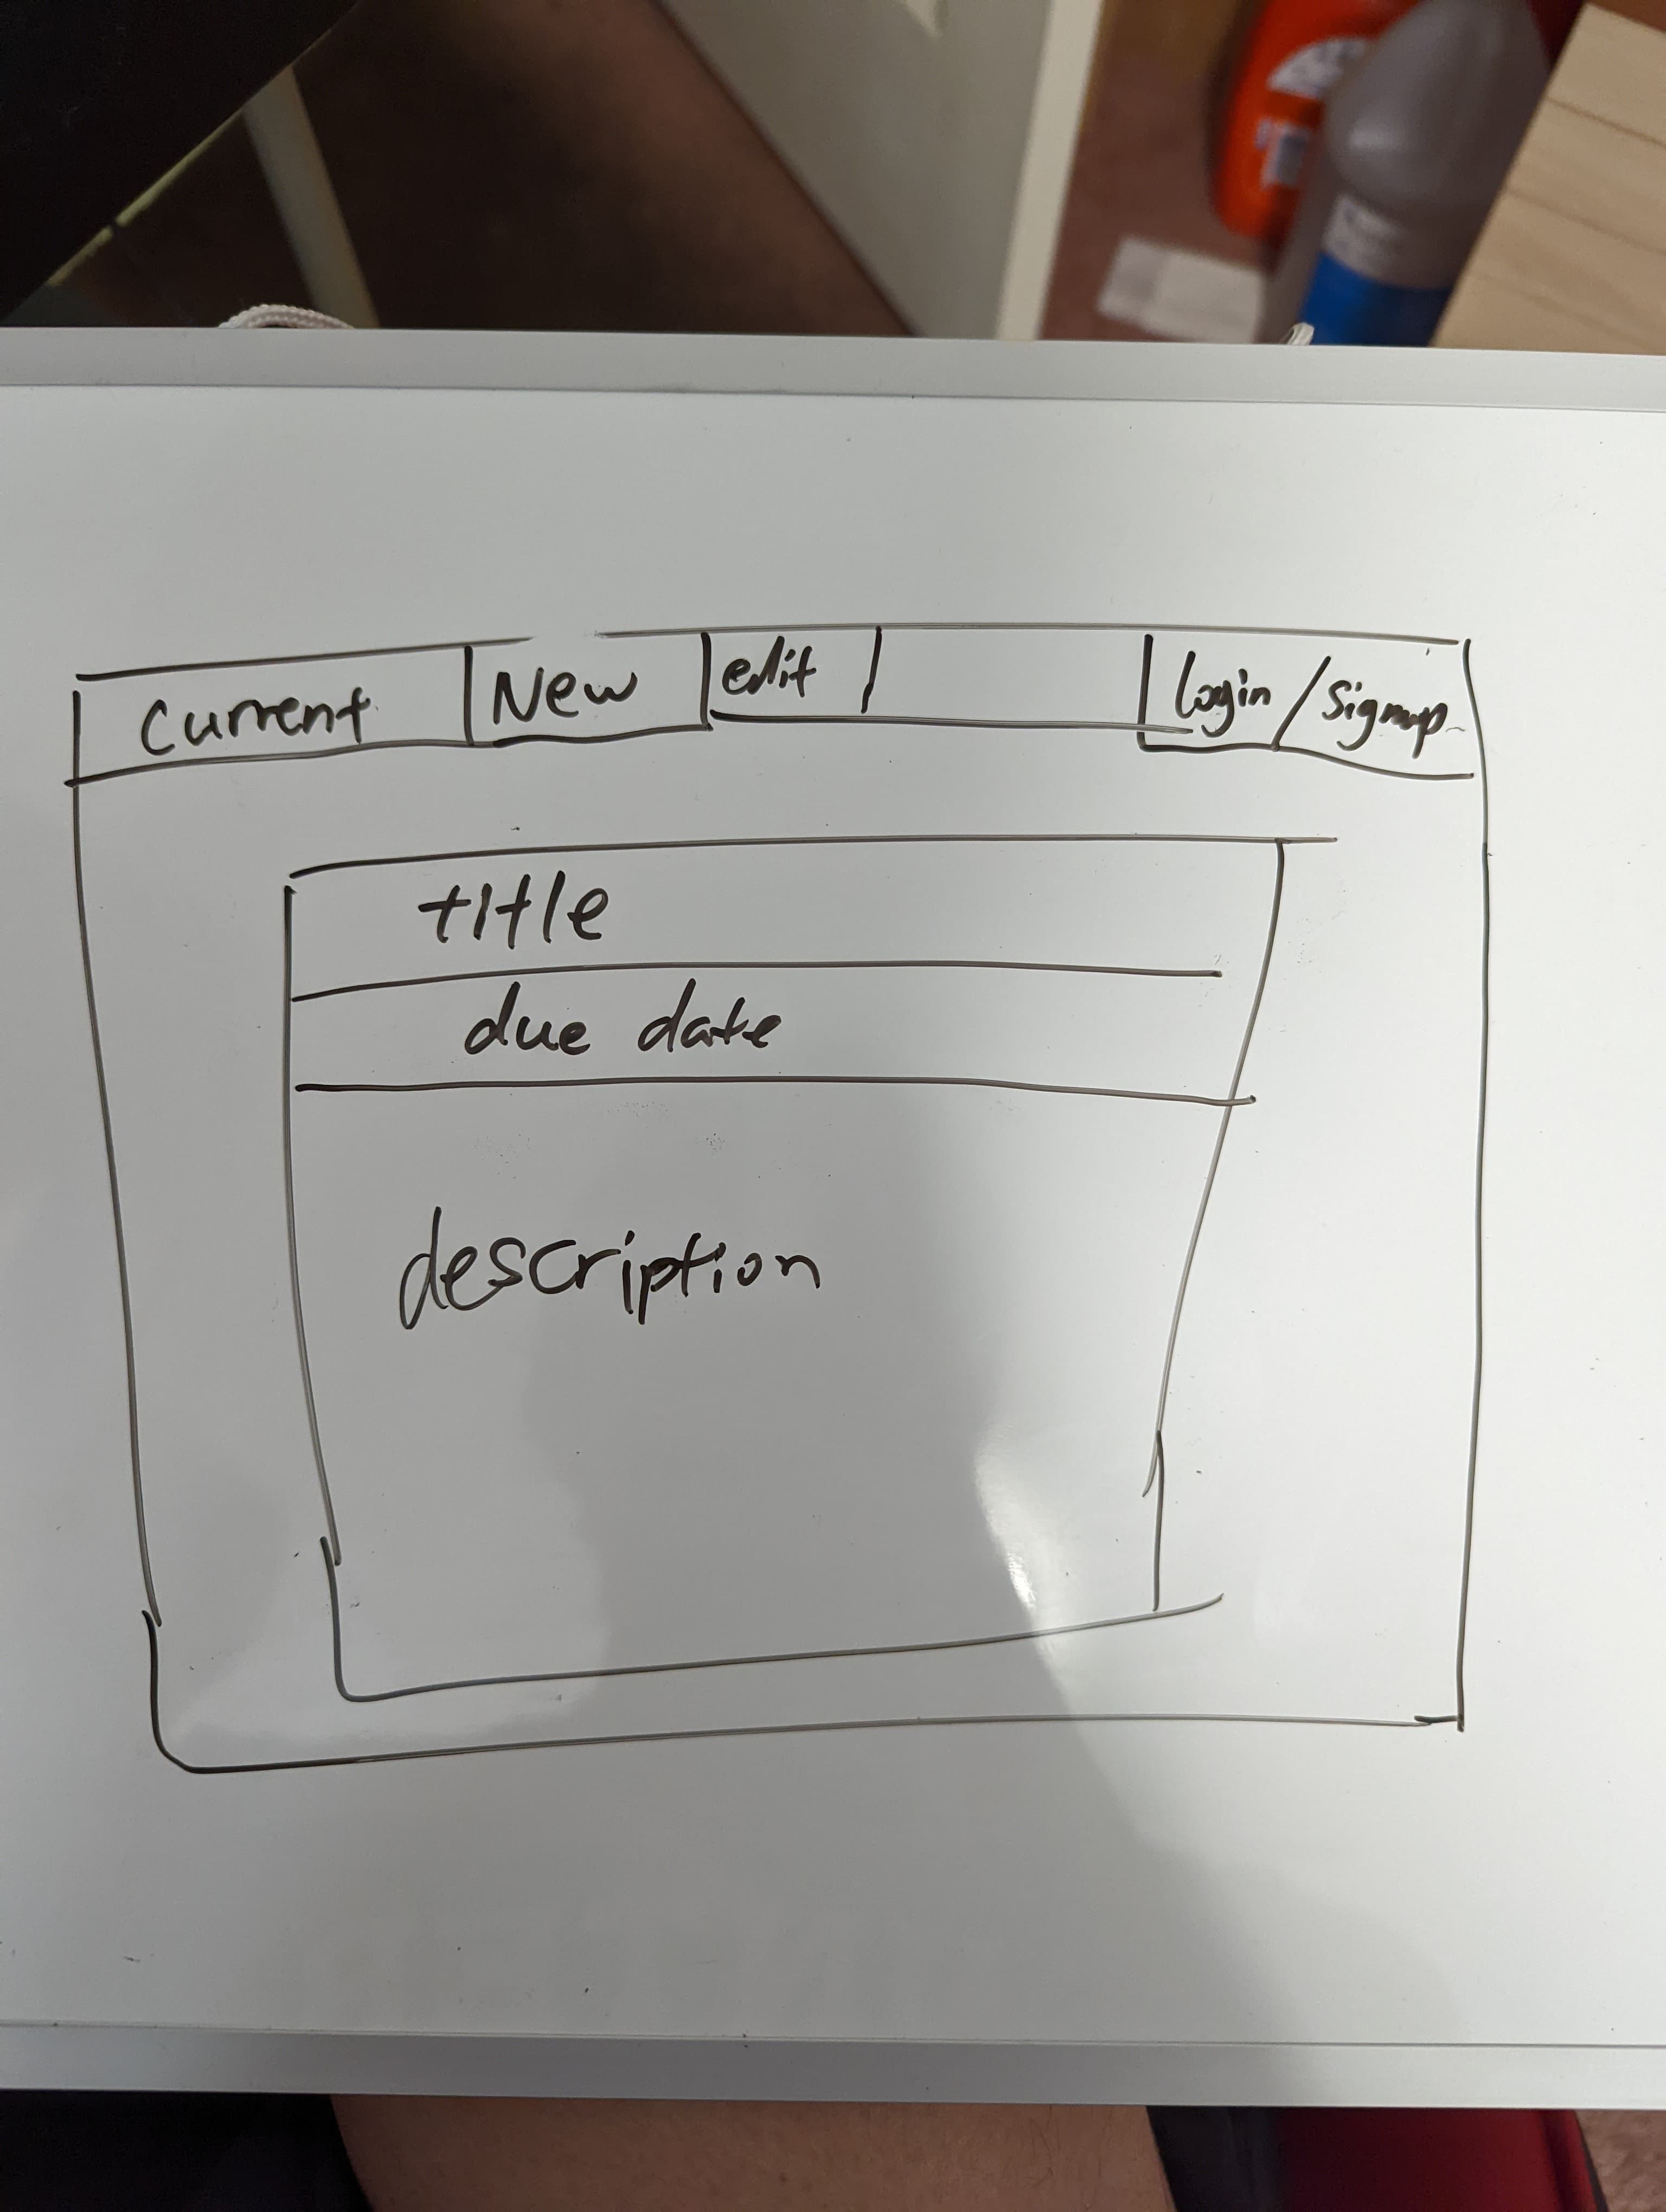 Current New edit Login / Signup
title
due date
description